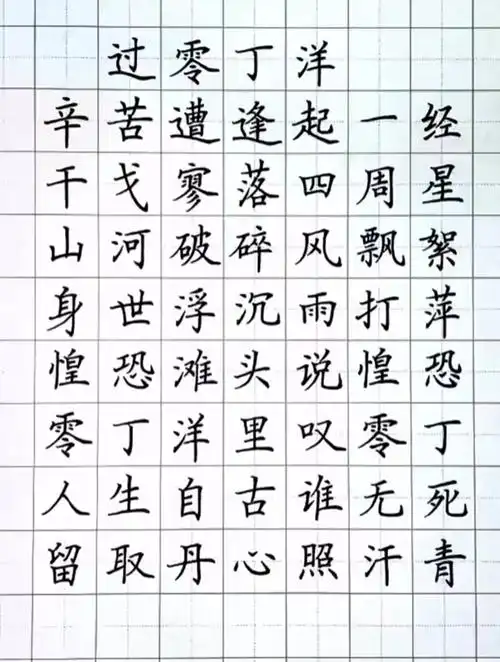 过零丁洋
辛苦遭逢起一经
干戈寥落四周星
山河破碎风飘絮
身世浮沉雨打萍
惶恐滩头说惶恐
零丁洋里叹零丁
人生自古谁无死
留取丹心照汗青